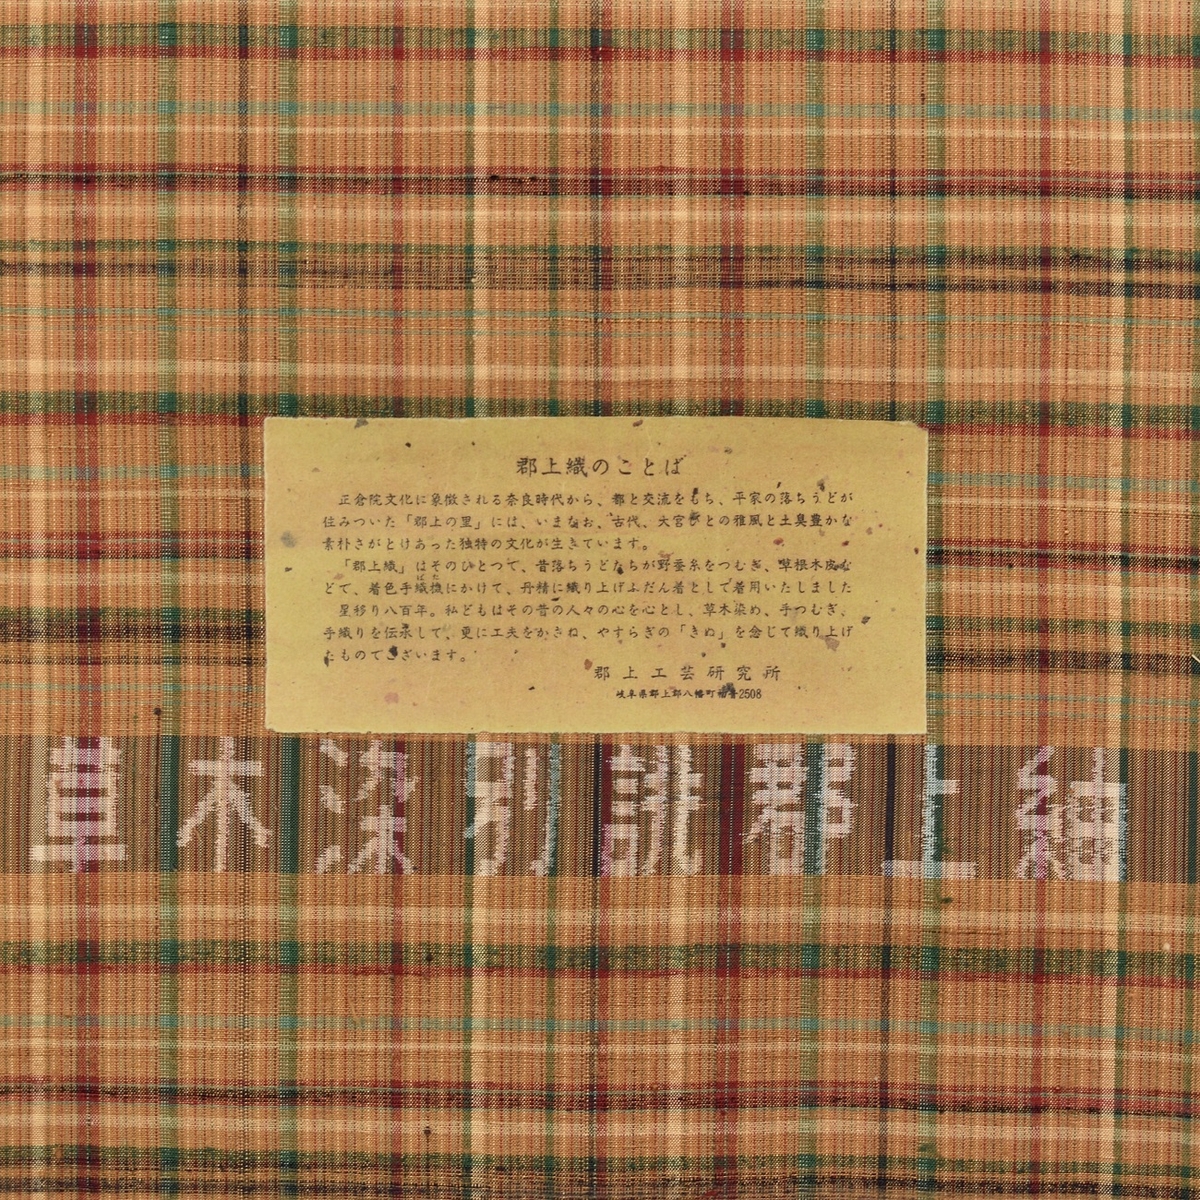 郡上織のことば
正倉院文化に象徴される奈良時代から、都と交流をもち、平家の落ちうどが
住みついた「郡上の里」には、いまなお、古代、大宮びとの雅風と土臭豊かな
素朴さがとけあった独特の文化が生きています。
「郡上織」はそのひとつで、昔落ちうどたちが野蚕糸をつむぎ、草根木皮な
どで、着色手織機にかけて、丹精に織り上げふだん着として着用いたしました
はた
星移り八百年。私どもはその昔の人々の心を心とし、草木染め、手つむぎ、
手織りを伝承して、更に工夫をかさね、やすらぎの「きぬ」を念じて織り上げ
たものでございます。
郡上工芸研究所
岐阜県郡上郡八幡町 2508
草木染別誂郡上紬